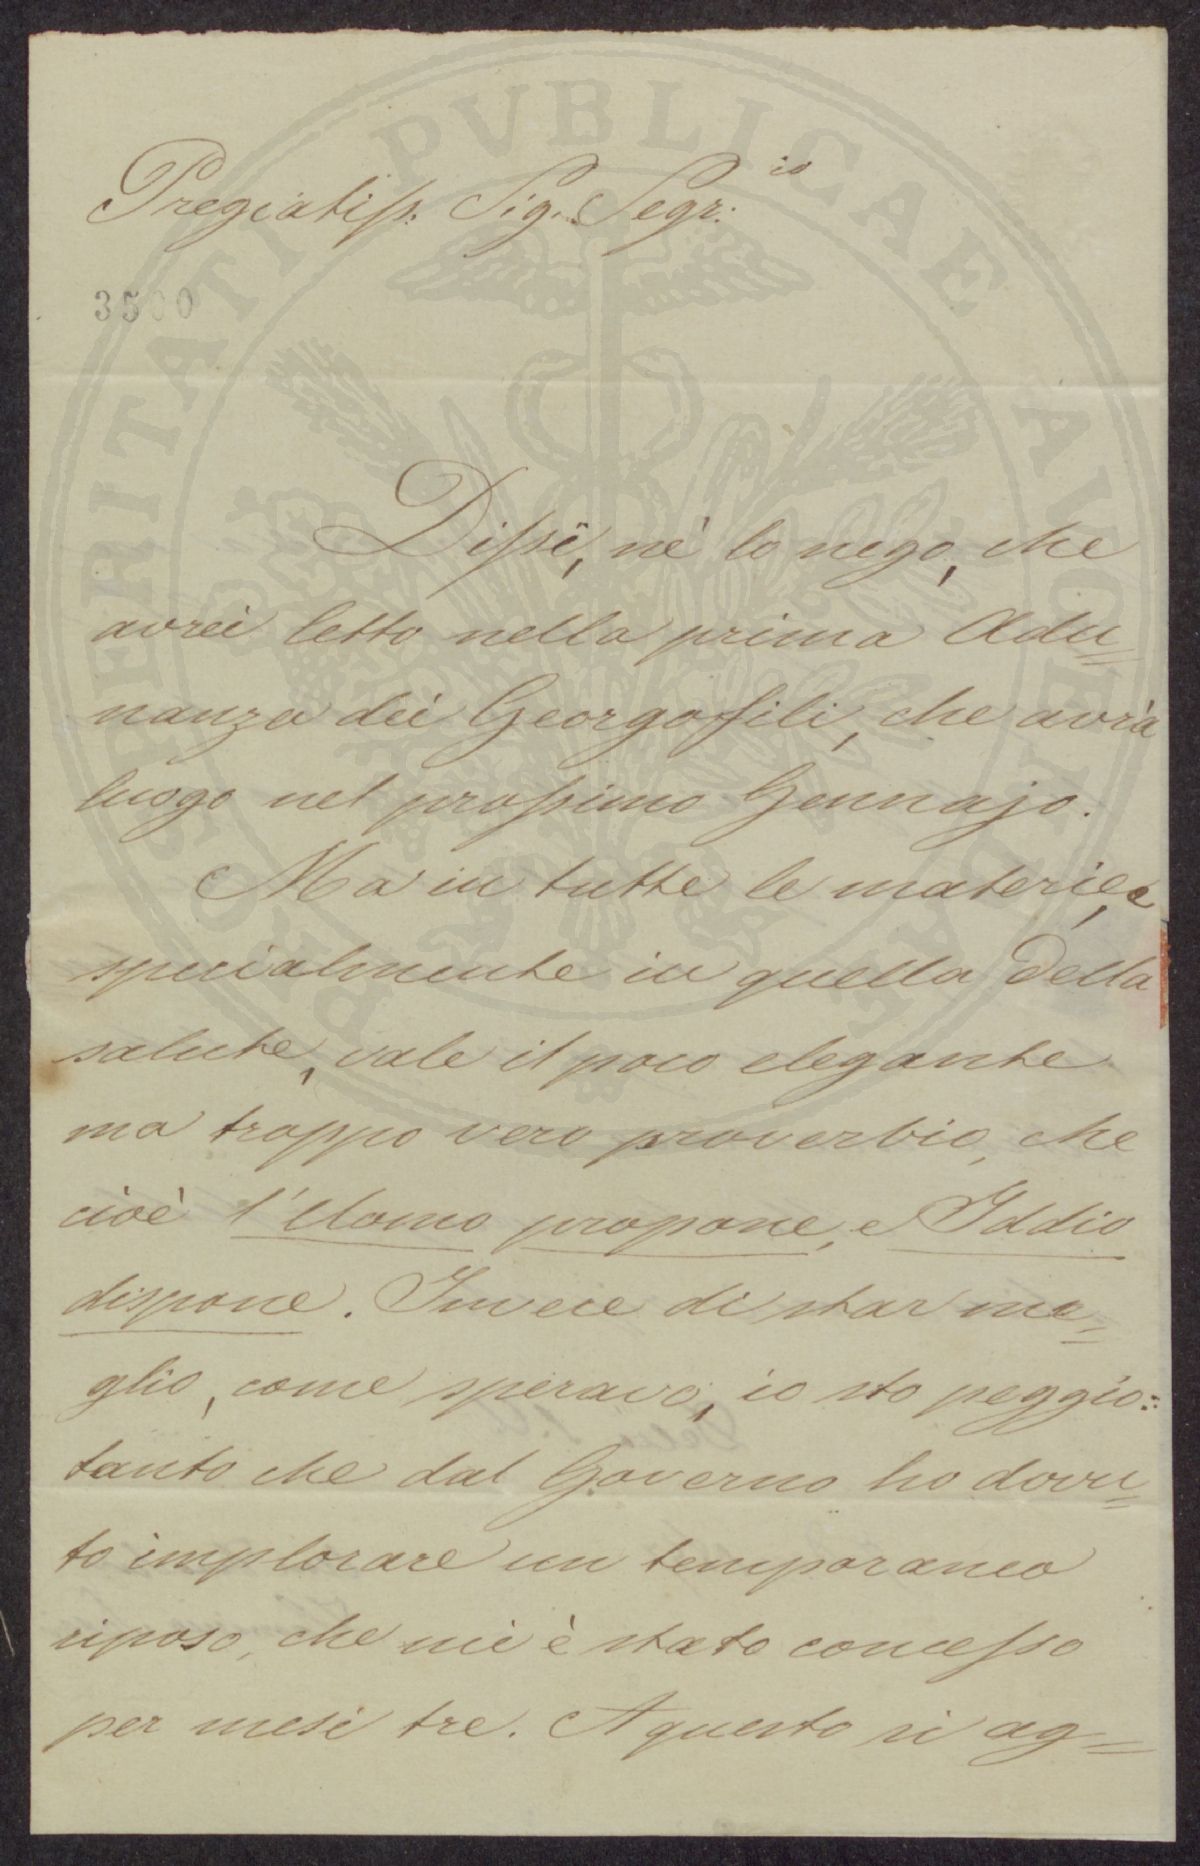 Pregiatiss. Sig. Segr.io
3500
Dissi, nè lo nego, che
avrei letto nella prima Adu=
nanza dei Georgofili, che avrà
luogo nel prossimo Gennajo.
Ma in tutte le materie, e
specialmente in quella della
salute, vale il poco elegante
ma troppo vero proverbio, che
cioè l'Uomo propone, e Iddio
dispone. Invece di star me=
glio, come speravo, io sto peggio:
tanto che dal Governo ho dovu=
to implorare un temporaneo
riposo, che mi è stato concesso
per mesi tre. A questo si ag=
PROSPERITATI PVBLICAE AVGENDAE